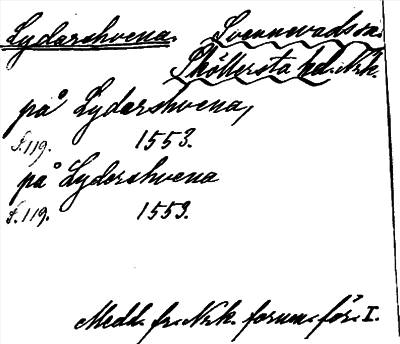 Lydershvena. Svennevads sn.
Sköllersta hd. Nrk.
på Lydershvena,
s. 119. 1553.
på Lydershvena
s. 119. 1553.
Medd. fr. Nrk. fornm. för. I.